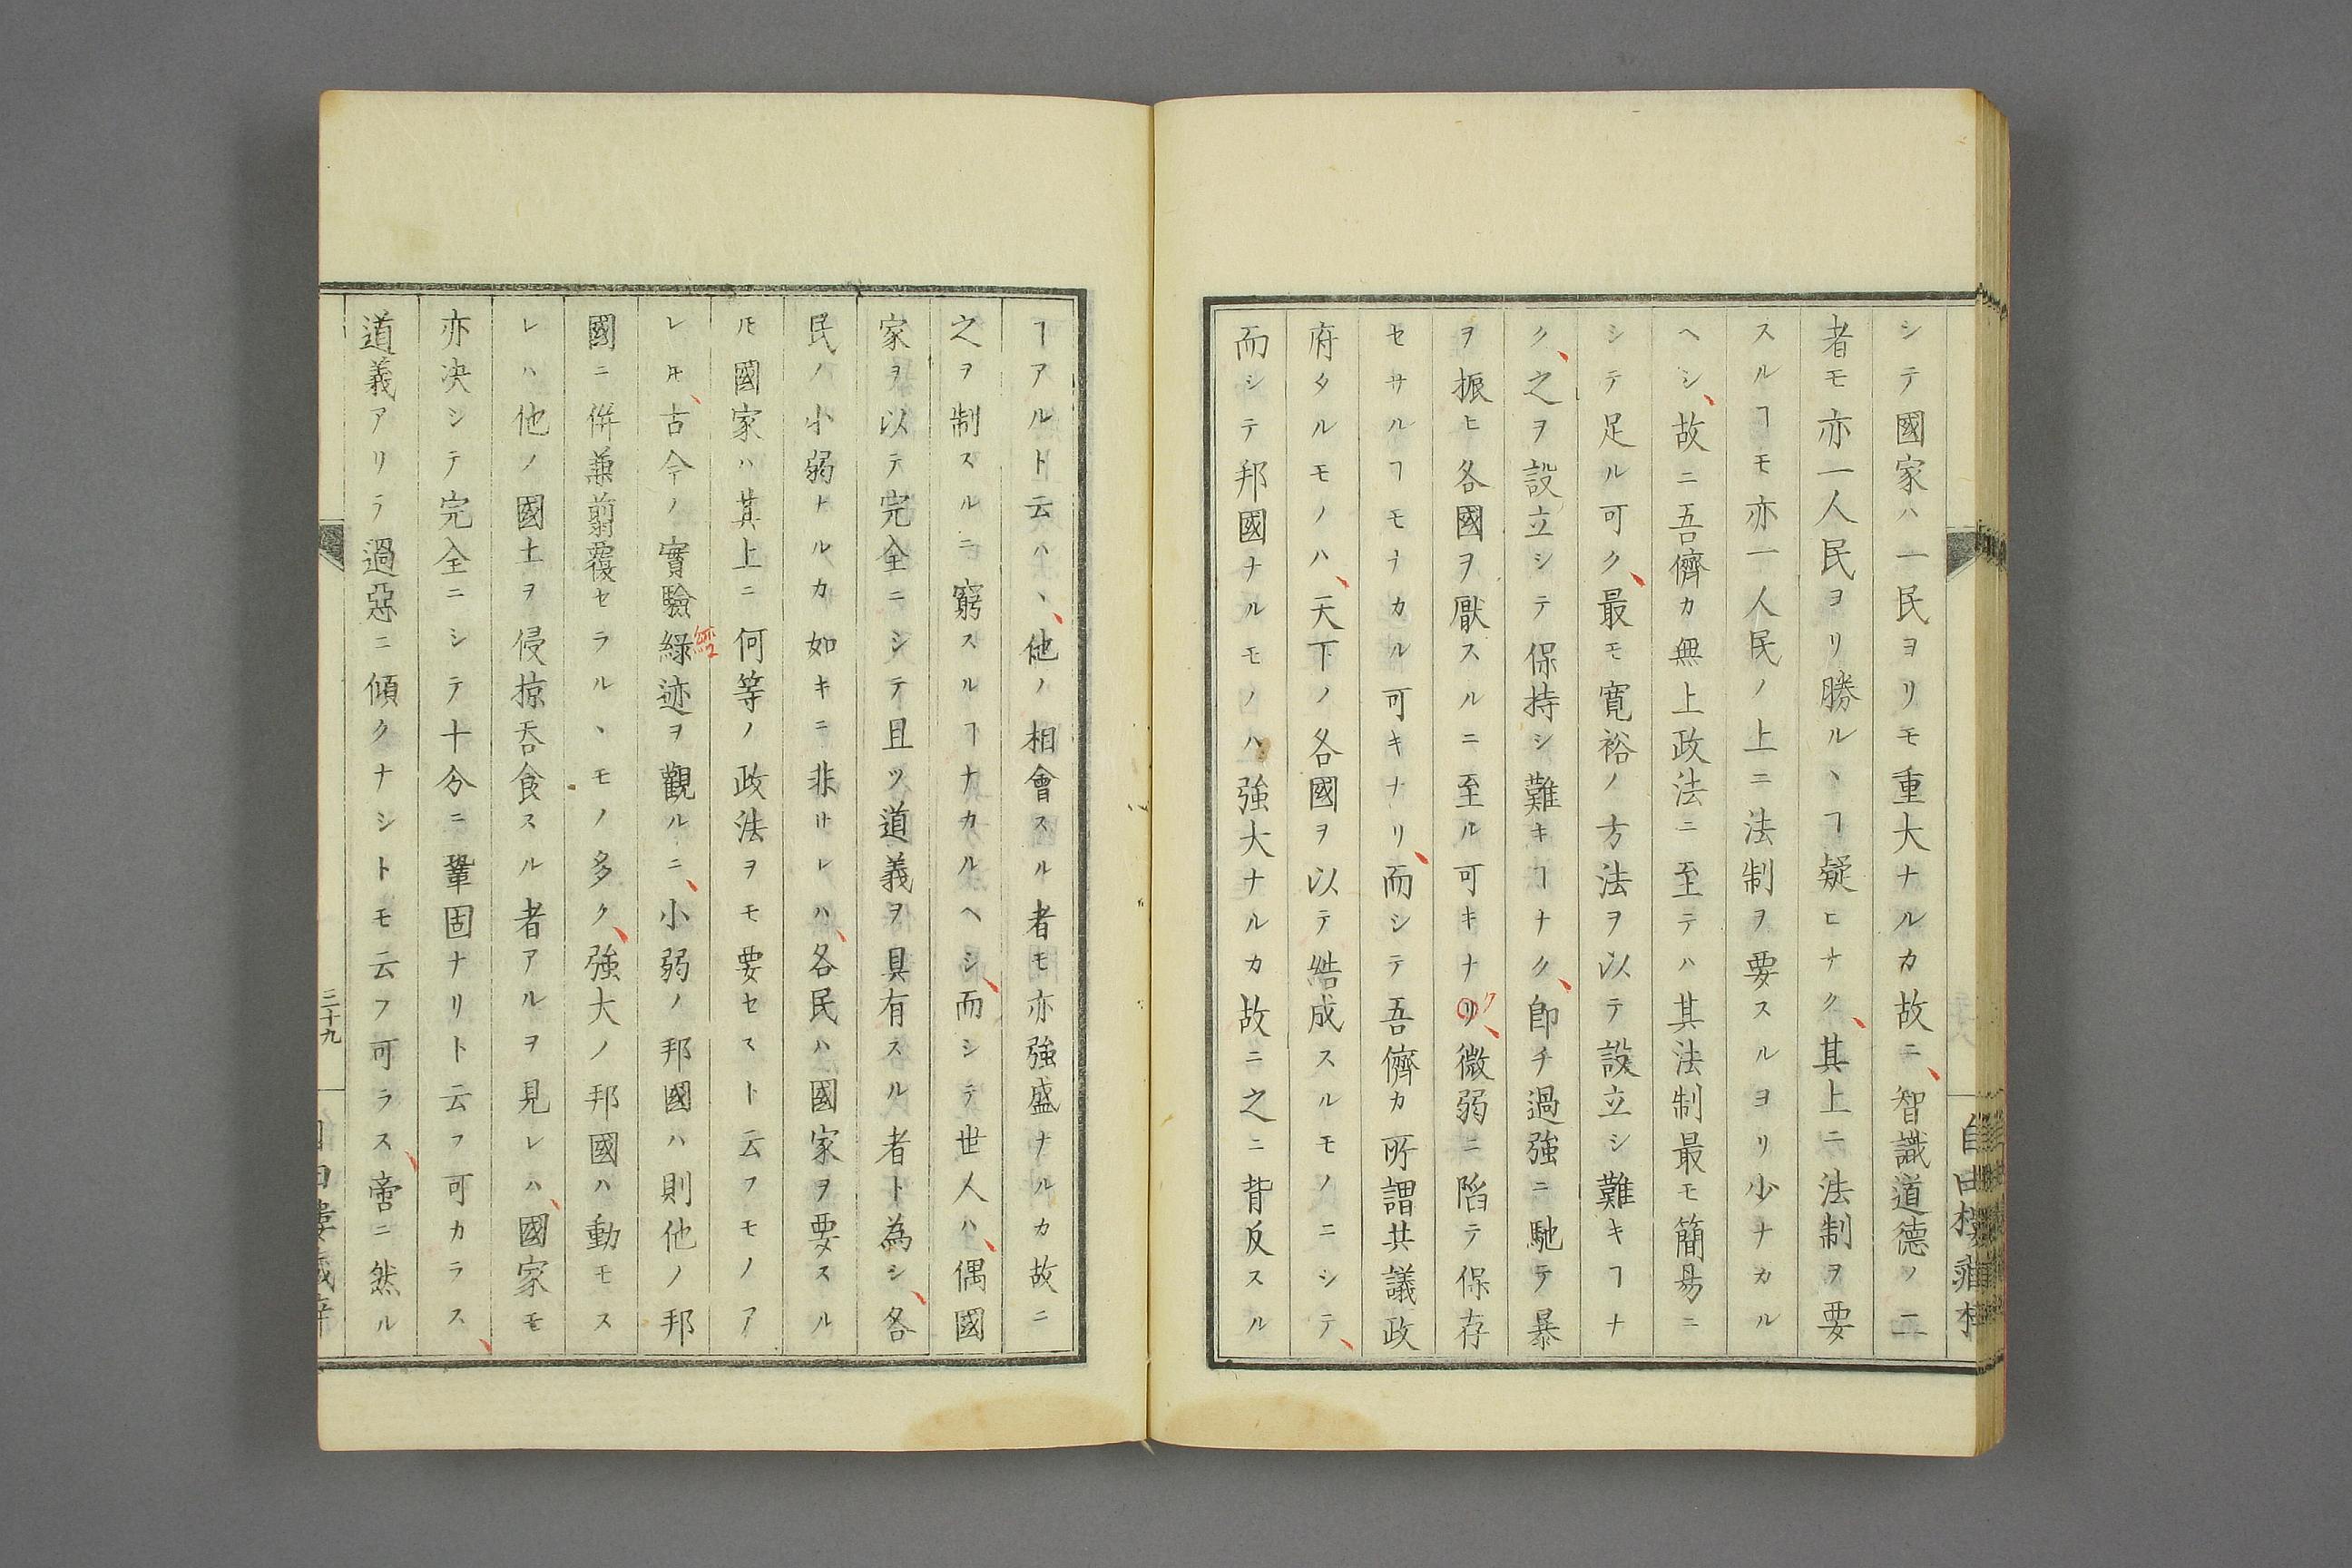 シテ國家ハ一民ヨリモ重大ナルカ故ニ、智識道德ノ二
者モ亦一人民ヨリ勝ルヽヿ疑ヒナク、其上ニ法制ヲ要
スルヿモ亦一人民ノ上ニ法制ヲ要スルヨリ少ナカル
ヘシ、故ニ吾儕カ無上政法ニ至テハ其法制最モ簡易ニ
シテ足ル可ク、最モ寛裕ノ方法ヲ以テ設立シ難キヿナ
ク、之ヲ設立シテ保持シ難キヿナク、卽チ過強ニ馳テ暴
ヲ振ヒ各國ヲ厭スルニ至ル可キナリク、微弱ニ陷テ保存
セサルヿモナカル可キナリ、而シテ吾儕カ所謂其議政
府タルモノハ、天下ノ各國ヲ以テ結成スルモノニシテ、
而シテ邦國ナルモノハ強大ナルカ故ニ之ニ背反スル
自由樓
ヿアルト云ハヽ、他ノ相會スル者モ亦強盛ナルカ故ニ
之ヲ制スルニ窮スルヿナカルヘシ、而シテ世人ハ、偶國
家ヲ以テ完全ニシテ且ツ道義ヲ具有スル者ト為シ、各
民ノ小弱ナルカ如キニ非サレハ、各民ハ國家ヲ要スル
ㇳモ國家ハ其上ニ何等ノ政法ヲモ要セスト云フモノア
レㇳモ、古今ノ實驗綠經迹ヲ觀ルニ、小弱ノ邦國ハ則他ノ邦
國ニ併兼翦覆セラルヽモノ多ク、強大ノ邦國ハ動モス
レハ他ノ國土ヲ侵掠呑食スル者アルヲ見レハ、國家モ
亦決シテ完全ニシテ十分ニ鞏固ナリト云フ可カラス、
道義アリテ過惡ニ傾クナシトモ云フ可ラス、啻ニ然ル
三十九